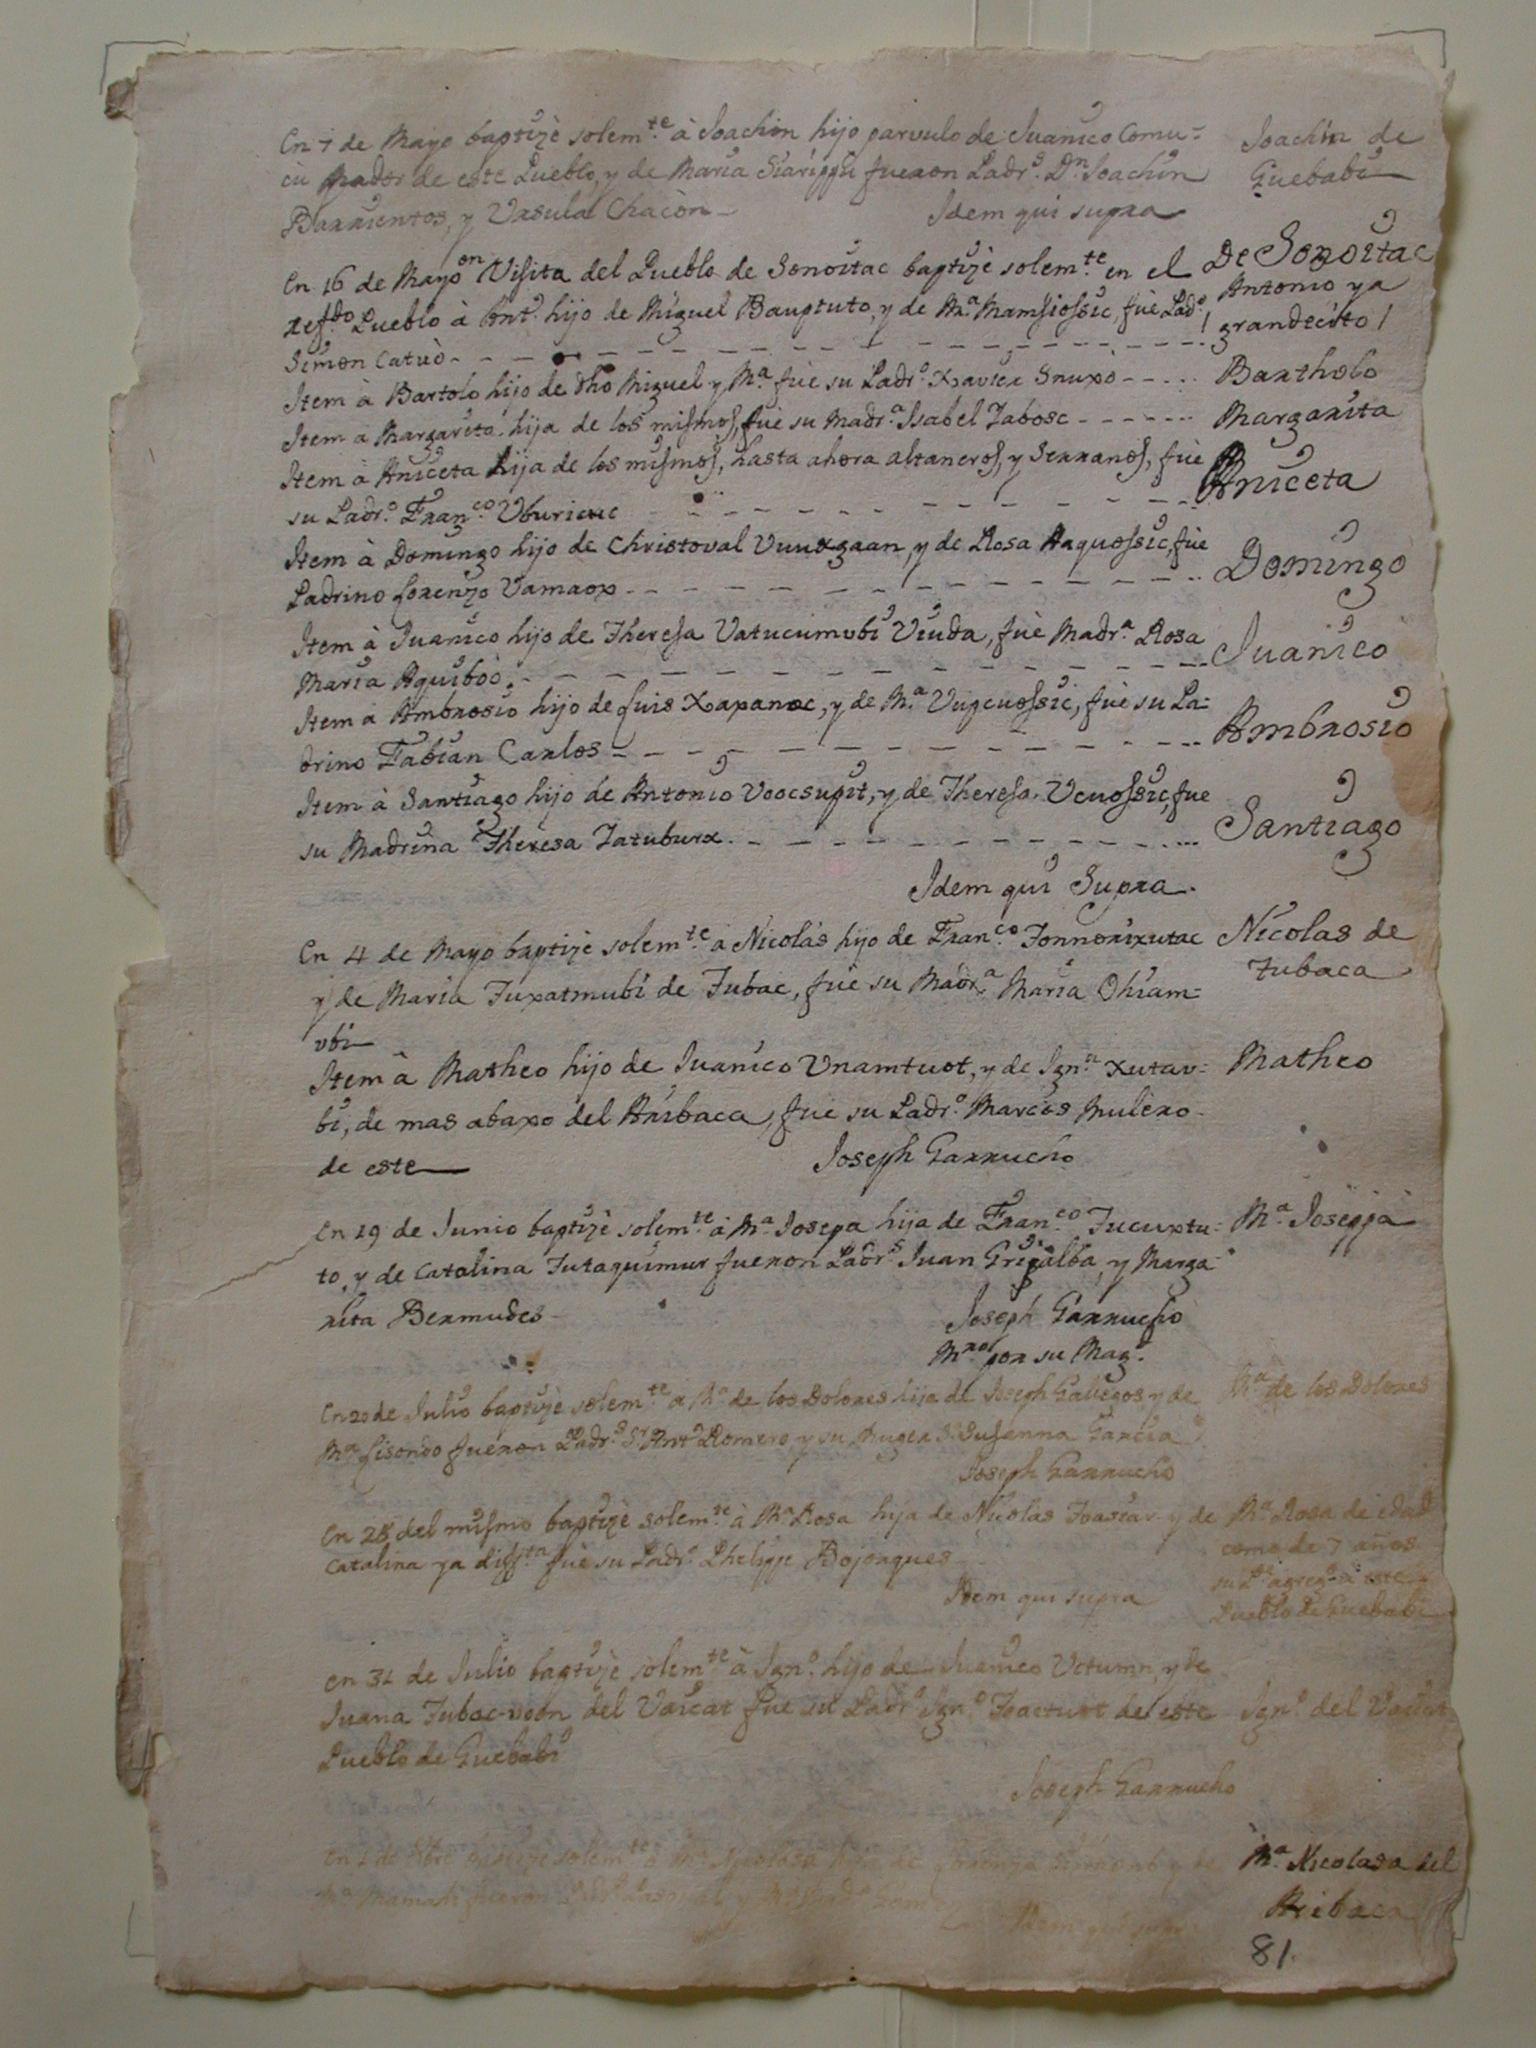 En 7 de Mayo baptizè solem.te à Joachin hijo parvulo de Juanico Comu-
cu Mador de este Pueblo, y de Maria Siarippu fueron Padr.s Dn. Joachin
Barrientos, y Ursula Chacòn
Idem qui supra
Joachin de
Guebabi
En 16 de Mayo en Visita del Pueblo de Sonoitac baptizè solem.te en el
refdo Pueblo à Ant.o hijo de Miguel Bauptuto, y de M.a Mamsiossic, fuè Pad.o
Simon Catuò
De Sonoitac
Antonio ya
grandecito
Item à Bartolo hijo de dho Miguel y M.a fuè su Padr.o Xavier Snuxò
Bartholo
Item à Margarita hija de los mismos, fuè su Madr.a Isabel Tabosc
Margarita
Item à Aniceta hija de los mismos, hasta ahora altaneros, y serranos, fuè
su Padr.o Fran.co Uburicuc
Aniceta
Item à Domingo hijo de Christoval Vuuxgaan, y de Rosa Aaquossic, fuè
Padrino Lorenzo Vamaox
Domingo
Item à Juanico hijo de Theresa Vatucumubi Viuda, fuè Madr.a Rosa
Maria Aquiboò
Juanico
Item à Ambrosio hijo de Luis Xapanoc, y de M.a Vupcuossic, fuè su Pa-
drino Fabian Carlos
Ambrosio
Item à Santiago hijo de Antonio Voocsupit, y de Theresa Ucuossic, fue
su Madrina Theresa Tatuburx
Santiago
Idem qui Supra
En 4 de Mayo baptizè solem.te à Nicolàs hijo de Fran.co Tonnorixutac
y de Maria Tuxatmubi de Tubac, fuè su Madr.a Maria Ohiam-
ubi
Nicolas de
Tubaca
Item à Matheo hijo de Juanico Unamtuot, y de Ign.a Xutav-
bi, de mas abaxo del Aribaca, fue su Padr.o Marcos Mulero
de este
Joseph Garrucho
Matheo
En 19 de Junio baptizè solem.te à M.a Josepa hija de Fran.co Tucuxtu-
to, y de Catalina Tutaquimur fueron Padr.s Juan Grijalba, y Marga-
rita Bermudes
Joseph Garrucho
Mro por su Mag.d
M.a Joseppa
En 20 de Julio baptizè solem.te à M.a de los Dolores hija de Joseph Gallegos y de
M.a Lisondo fueron Padr.s Sr. Ant.o Romero, y su Muger S.a Susanna Garcia
Joseph Garrucho
M.a de los Dolores
En 28 del mismo baptizè solem.te à M.a Rosa hija de Nicolas y de
Catalina ya diff.ta fuè su Padr.o Phelippe Bojorques
Idem qui supra
M.a Rosa de edad
como de 7 años
su P.e agreg.o a este
Pueblo de Guebabi
En 31 de Julio baptizè solem.te à Ign.o hijo de Juanico Uctumn, y de
Juana Tubac-voon del Vaicat fue su Padr.o Ign.o Toactuot de este
Pueblo de Guebabi
Joseph Garrucho
Ign.o del Vaicat
En de baptizè solem.te à M.a Nicolasa hija de y de
M.a fueron
Idem qui supra
M.a Nicolasa del
Aribaca
81.